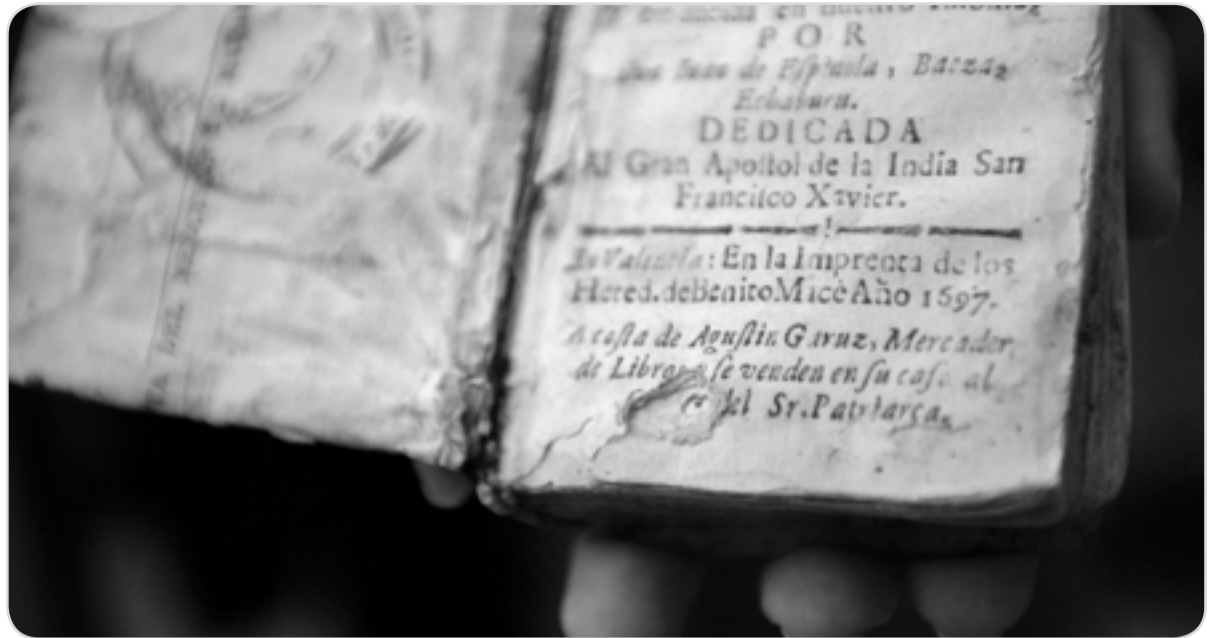 en nuestro
POR
Juan de Espinola, Baeza,
Echaburu.
DEDICADA
Al Gran Apostol de la India San
Francisco Xavier.
En Valencia: En la Imprenta de los
Hered. de Benito Macè Año 1697.
A costa de Agustin Garuz, Mercader
de Libros, se venden en su casa al
del Sr. Patriarca.